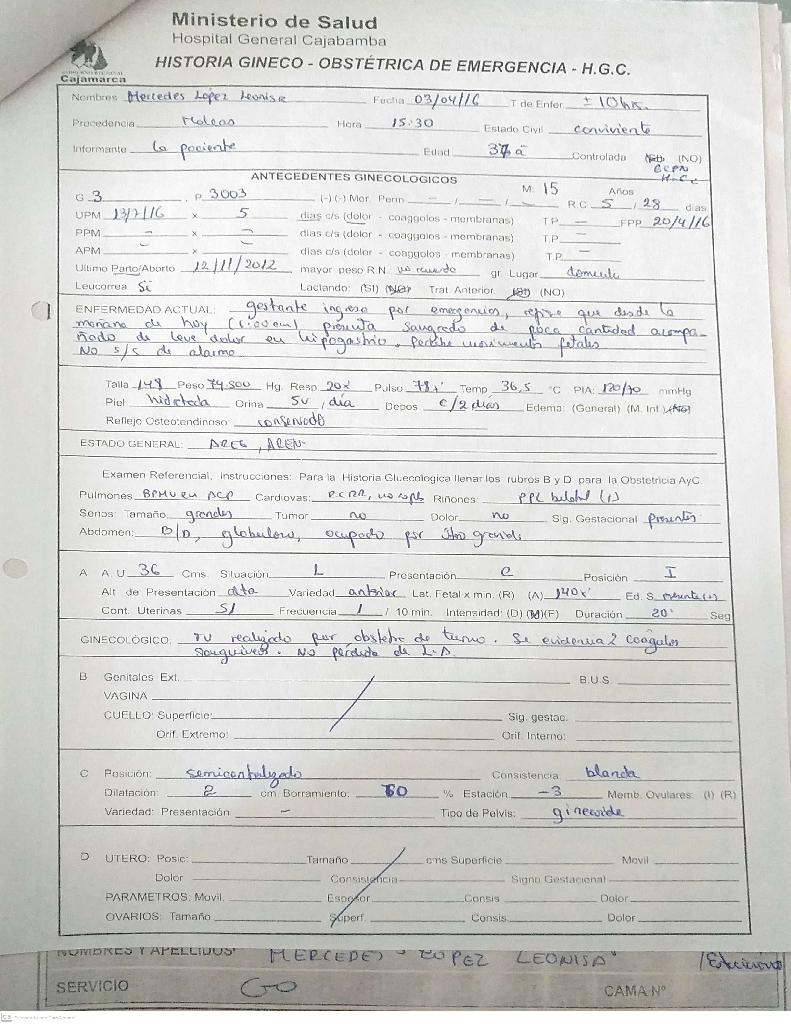 Ministerio de Salud
Hospital General Cajabamba
HISTORIA GINECO - OBSTÉTRICA DE EMERGENCIA - H.G.C.
Cajamarca
Nombres Mercedes Lopez Leonisa Fecha 03/04/16 T de Enfer. ± 10 hr.
Procedencia Hora 15:30 Estado Civil conviviente
Informante la paciente Edad 37 a Controlada (NO)
ANTECEDENTES GINECOLOGICOS M: 15 Años
G 3 P 3003 (-) (-) Mor. Perin - / - / - R.C 5 / 28 dias
UPM 13/7/16 x 5 dias c/s (dolor - coaggolos - membranas) T.P. - FPP 20/4/16
PPM - x - dias c/s (dolor - coaggolos - membranas) T.P. -
APM - x - dias c/s (dolor - coaggolos - membranas) T.P. -
Ultimo Parto/Aborto 12/11/2012 mayor peso R.N: no recuerda gr. Lugar domicilio
Leucorrea Si Lactando: (SI) (NO) Trat. Anterior. (NO)
ENFERMEDAD ACTUAL: gestante ingresa por emergencia, refiere que desde la
mañana de hoy presenta sangrado de poca cantidad acompa-
ñado de leve dolor en hipogastrio. Percibe movimientos fetales
No s/s de alarma.
Talla 148 Peso 74.500 Hg. Resp 20x' Pulso 78x' Temp 36,5 °C P/A: 120/70 mmHg
Piel hidratada Orina 5v / dia Depos c/2 dias Edema: (General) (M. Inf.)
Reflejo Osteotendinoso conservado
ESTADO GENERAL: AREG, AREN
Examen Referencial, instrucciones: Para la Historia Gluecologica llenar los rubros B y D para la Obstetricia AyC.
Pulmones BPMV en ACP Cardiovas: RCRR, no soplos Riñones: PPL bilateral (-)
Senos: Tamaño grandes Tumor no Dolor no Sig. Gestacional presentes
Abdomen: B/D, globuloso, ocupado por útero grande
A A.U 36 Cms. Situación L Presentación C Posición I
Alt de Presentación alta Variedad anterior Lat. Fetal x m.n. (R) (A) 140x' Ed. S. presente (+)
Cont. Uterinas SI Frecuencia 1 / 10 min. Intensidad: (D) (M) (F) Duración 20' Seg
GINECOLÓGICO: TV realizado por obstetra de turno. Se evidencia 2 coágulos
sanguíneos. No pérdida de L.A.
B Genitales Ext. B.U.S.
VAGINA
CUELLO: Superficie: Sig. gestac.
Orif. Extremo: Orif. Interno:
C Posición: semicentralizado Consistencia blanda
Dilatación: 2 cm Borramiento: 60 % Estación -3 Memb. Ovulares: (I) (R)
Variedad: Presentación - Tipo de Pelvis: ginecoide
D UTERO: Posic: Tamaño cms Superficie Movil
Dolor Consistencia Signo Gestacional
PARAMETROS: Movil. Espesor Consis Dolor
OVARIOS: Tamaño Superf. Consis. Dolor
NOMBRES Y APELLIDOS MERCEDES LOPEZ LEONISA
SERVICIO GO CAMA Nº